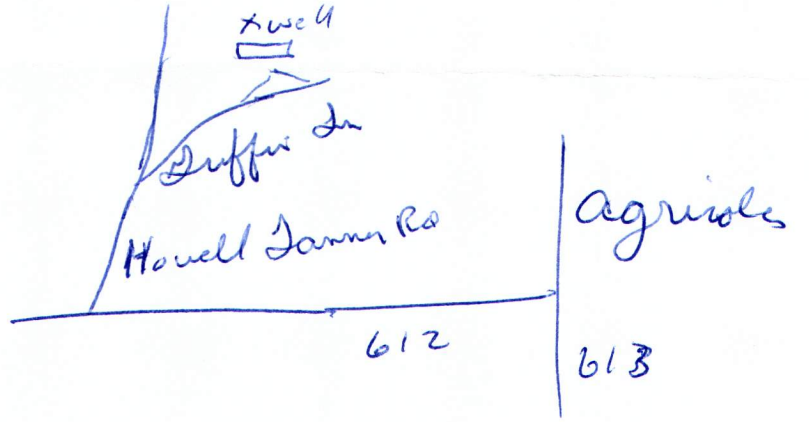 x well
Griffin Ln
Howell Tanner Rd
Agricola
612
613